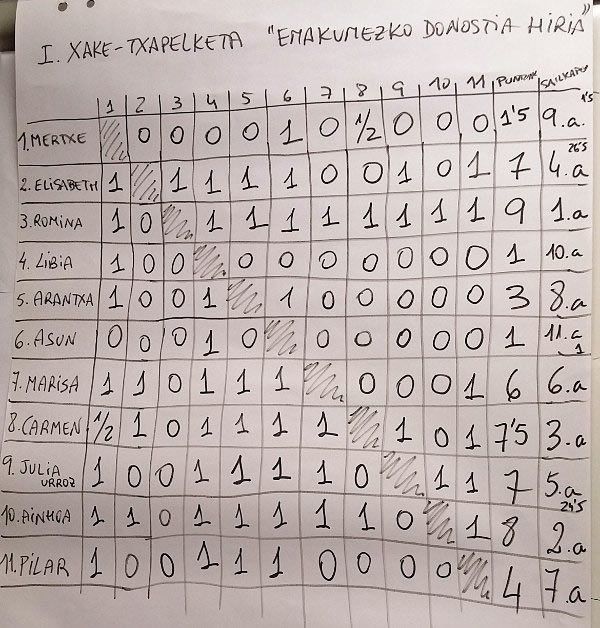 I. XAKE-TXAPELKETA "EMAKUMEZKO DONOSTIA HIRIA"
1 2 3 4 5 6 7 8 9 10 11 PUNTUAK SAILKAPEN
1. MERTXE 0 0 0 0 1 0 1/2 0 0 0 1'5 9.a. 1'5
2. ELISABETH 1 1 1 1 1 0 0 1 0 1 7 4.a 26'5
3. ROMINA 1 0 1 1 1 1 1 1 1 1 9 1.a
4. LIBIA 1 0 0 0 0 0 0 0 0 0 1 10.a
5. ARANTXA 1 0 0 1 1 0 0 0 0 0 3 8.a
6. ASUN 0 0 0 1 0 0 0 0 0 0 1 11.a 1
7. MARISA 1 1 0 1 1 1 0 0 0 1 6 6.a
8. CARMEN 1/2 1 0 1 1 1 1 1 0 1 7'5 3.a
9. JULIA URROZ 1 0 0 1 1 1 1 0 1 1 7 5.a 24'5
10. AINHOA 1 1 0 1 1 1 1 1 0 1 8 2.a
11. PILAR 1 0 0 1 1 1 0 0 0 0 4 7.a